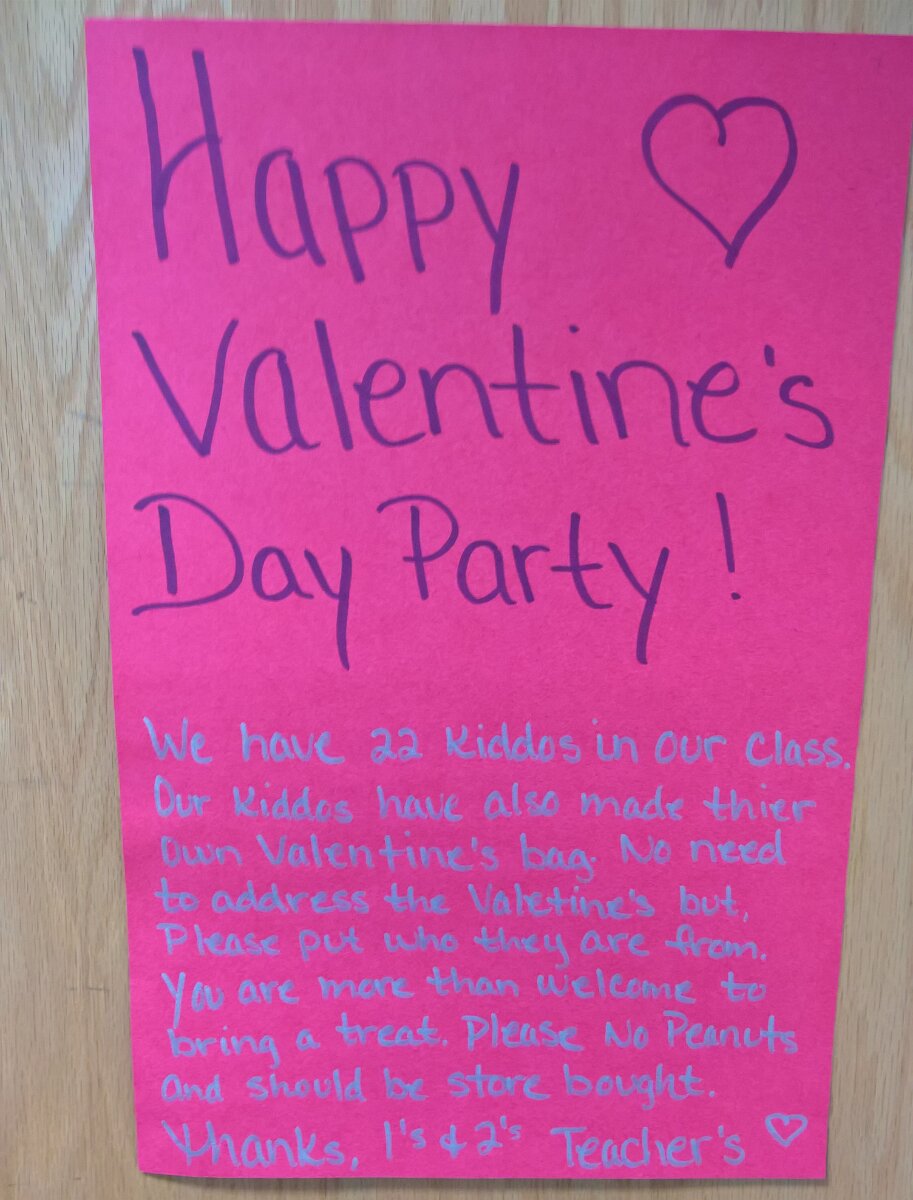 Happy
Valentine's
Day Party!
We have 22 Kiddos in our Class.
Our Kiddos have also made thier
own Valentine's bag. No need
to address the Valetine's but,
Please put who they are from.
You are more than welcome to
bring a treat. Please No Peanuts
and should be store bought.
Thanks, 1's & 2's Teacher's